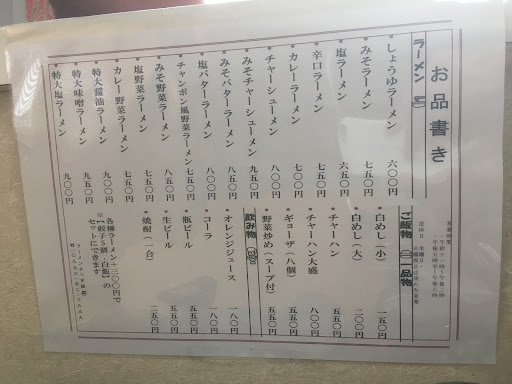 お品書き
ラーメン
・しょうゆラーメン 六〇〇円
・みそラーメン 七五〇円
・塩ラーメン 六五〇円
・辛口ラーメン 七五〇円
・カレーラーメン 七〇〇円
・チャーシューメン 八〇〇円
・みそチャーシューメン 九五〇円
・みそバターラーメン 八五〇円
・塩バターラーメン 八〇〇円
・チャンポン風野菜ラーメン 七五〇円
・みそ野菜ラーメン 八五〇円
・塩野菜ラーメン 七五〇円
・カレー野菜ラーメン 七五〇円
・特大醤油ラーメン 九〇〇円
・特大味噌ラーメン 九五〇円
・特大塩ラーメン 九〇〇円
営業時間
定休日 木曜日
ご飯物 一品物
・白めし(小) 一五〇円
・白めし(大) 二〇〇円
・チャーハン 五五〇円
・チャーハン大盛 八〇〇円
・ギョーザ(八個) 五五〇円
・野菜炒め(スープ付) 五五〇円
飲み物
・オレンジジュース 一八〇円
・コーラ 一八〇円
・瓶ビール 五五〇円
・生ビール 五五〇円
・焼酎(一合) 二五〇円
各種ラーメン+三〇〇円で
【餃子5個・白飯】の
セットにできます